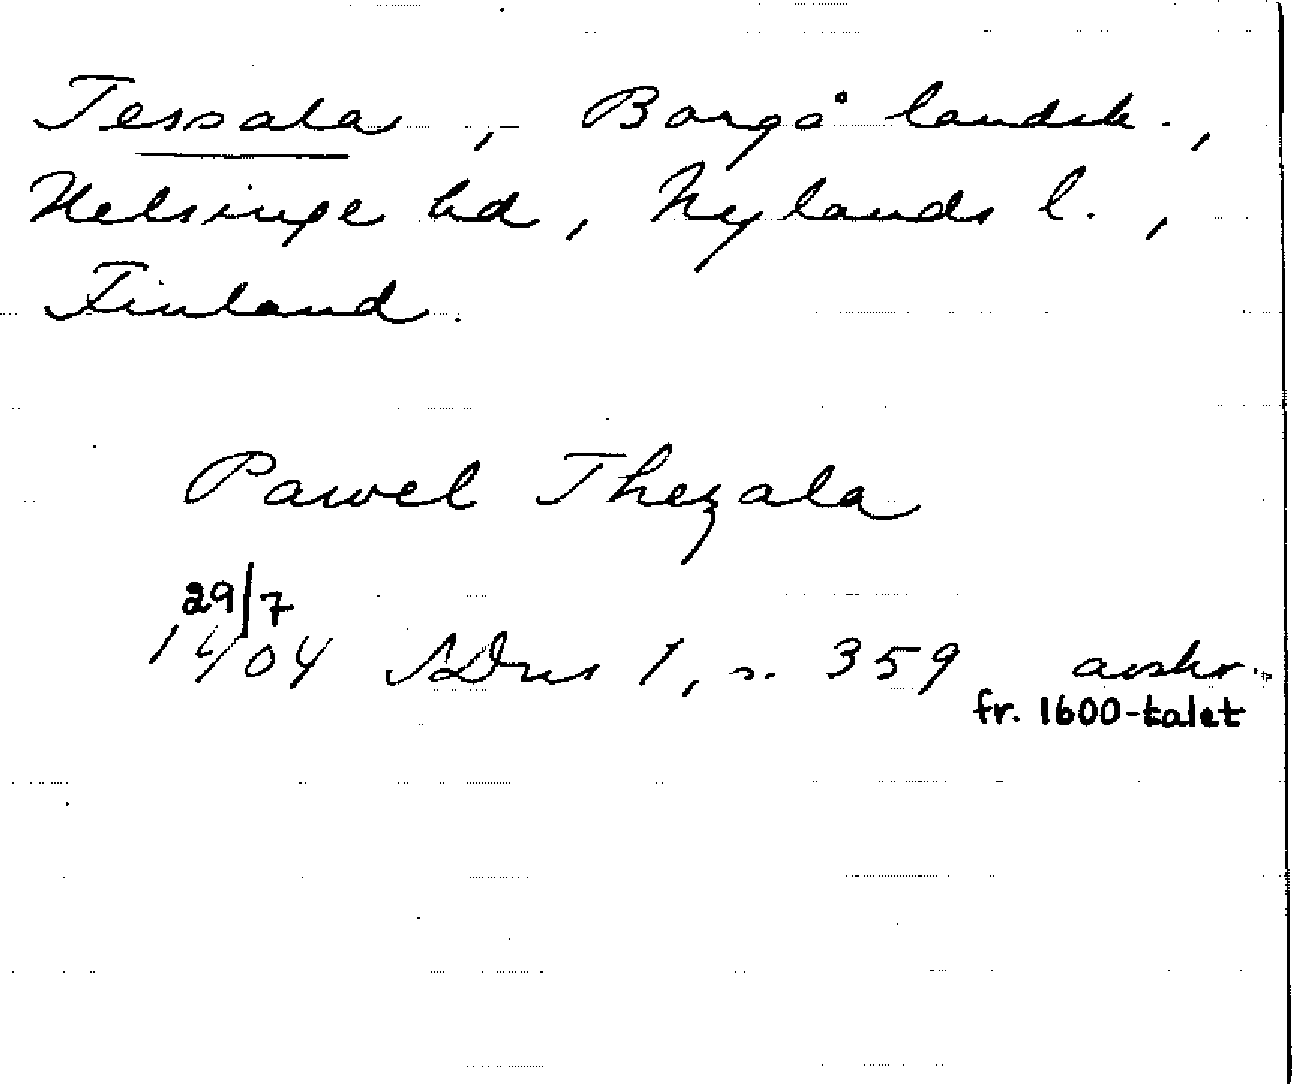 Tessala, Borgå landsk.,
Helsinge hd, Nylands l.,
Finland.
Pawel Thezala
29/7
1404 SDns 1, s. 359 avskr.
fr. 1600-talet